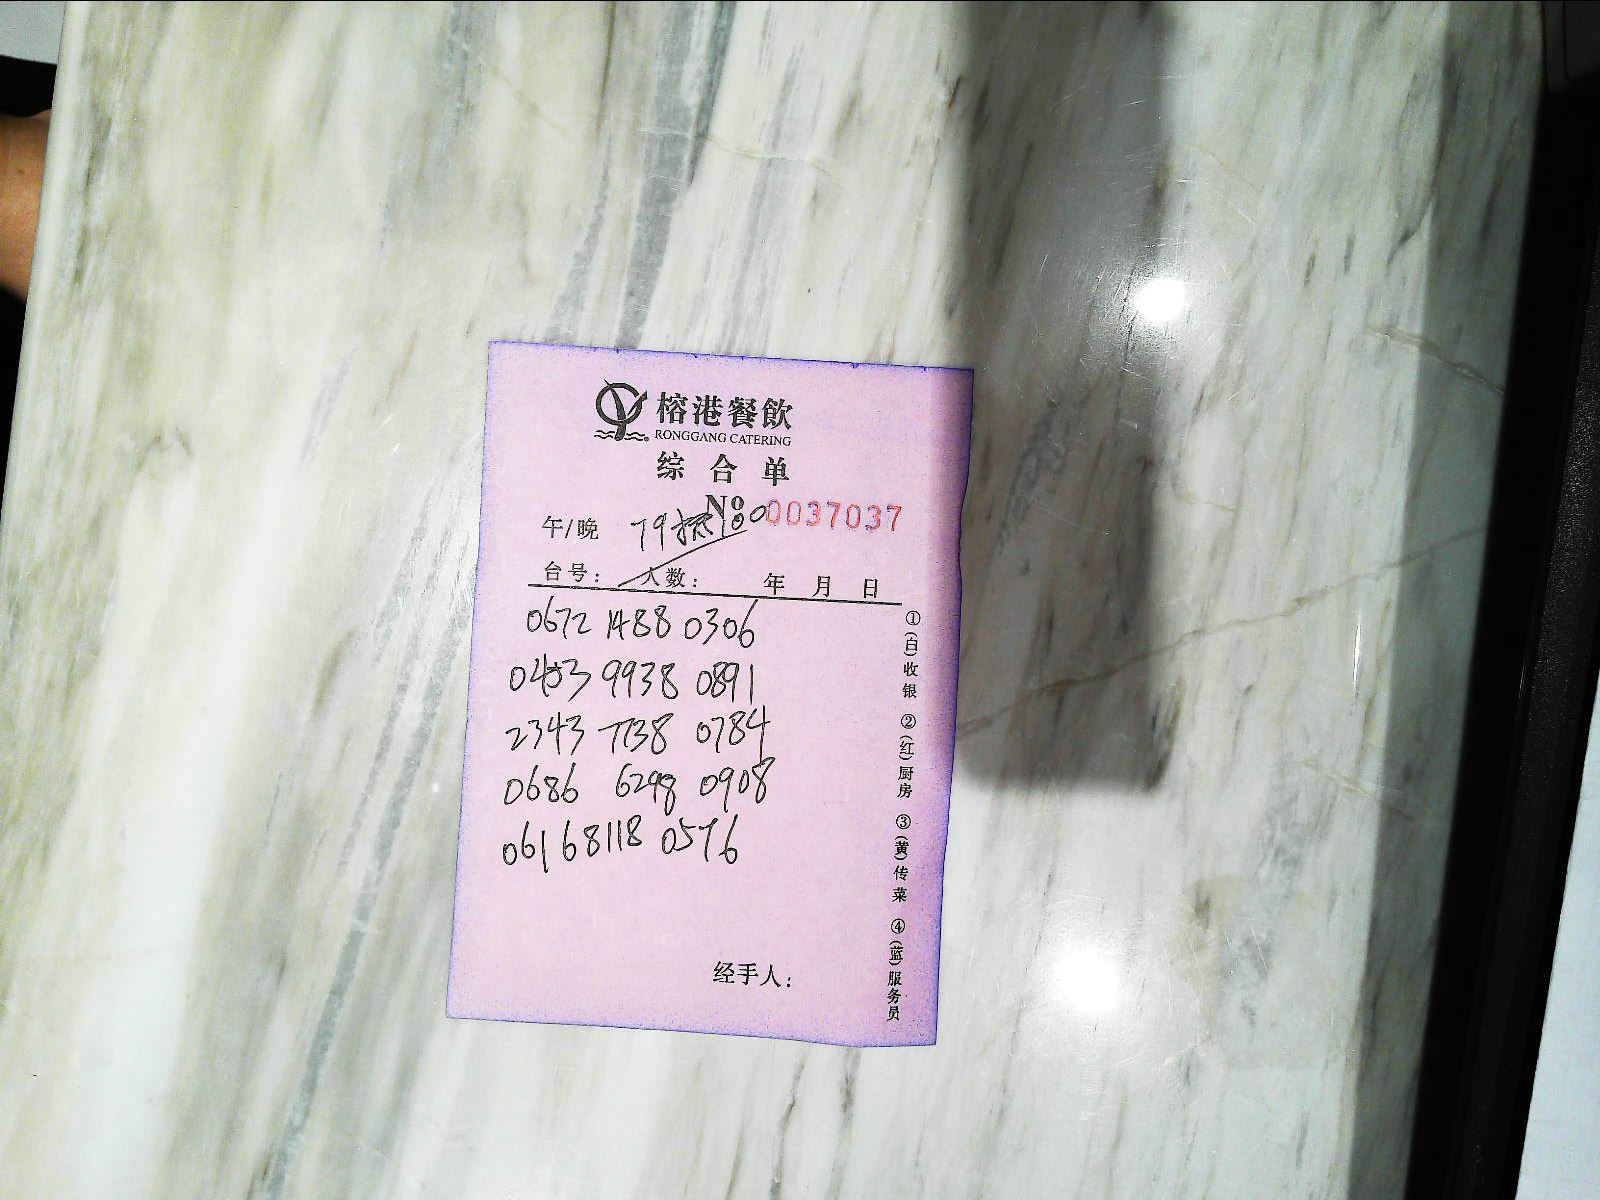 榕港餐飲
RONGGANG CATERING
综合单
№ 0037037
午/晚 79 100
台号： 人数： 年 月 日
0672 1488 0306
0453 9938 0891
2343 7738 0784
0686 6298 0908
0616 8118 0576
经手人：
①(白)收银 ②(红)厨房 ③(黄)传菜 ④(蓝)服务员